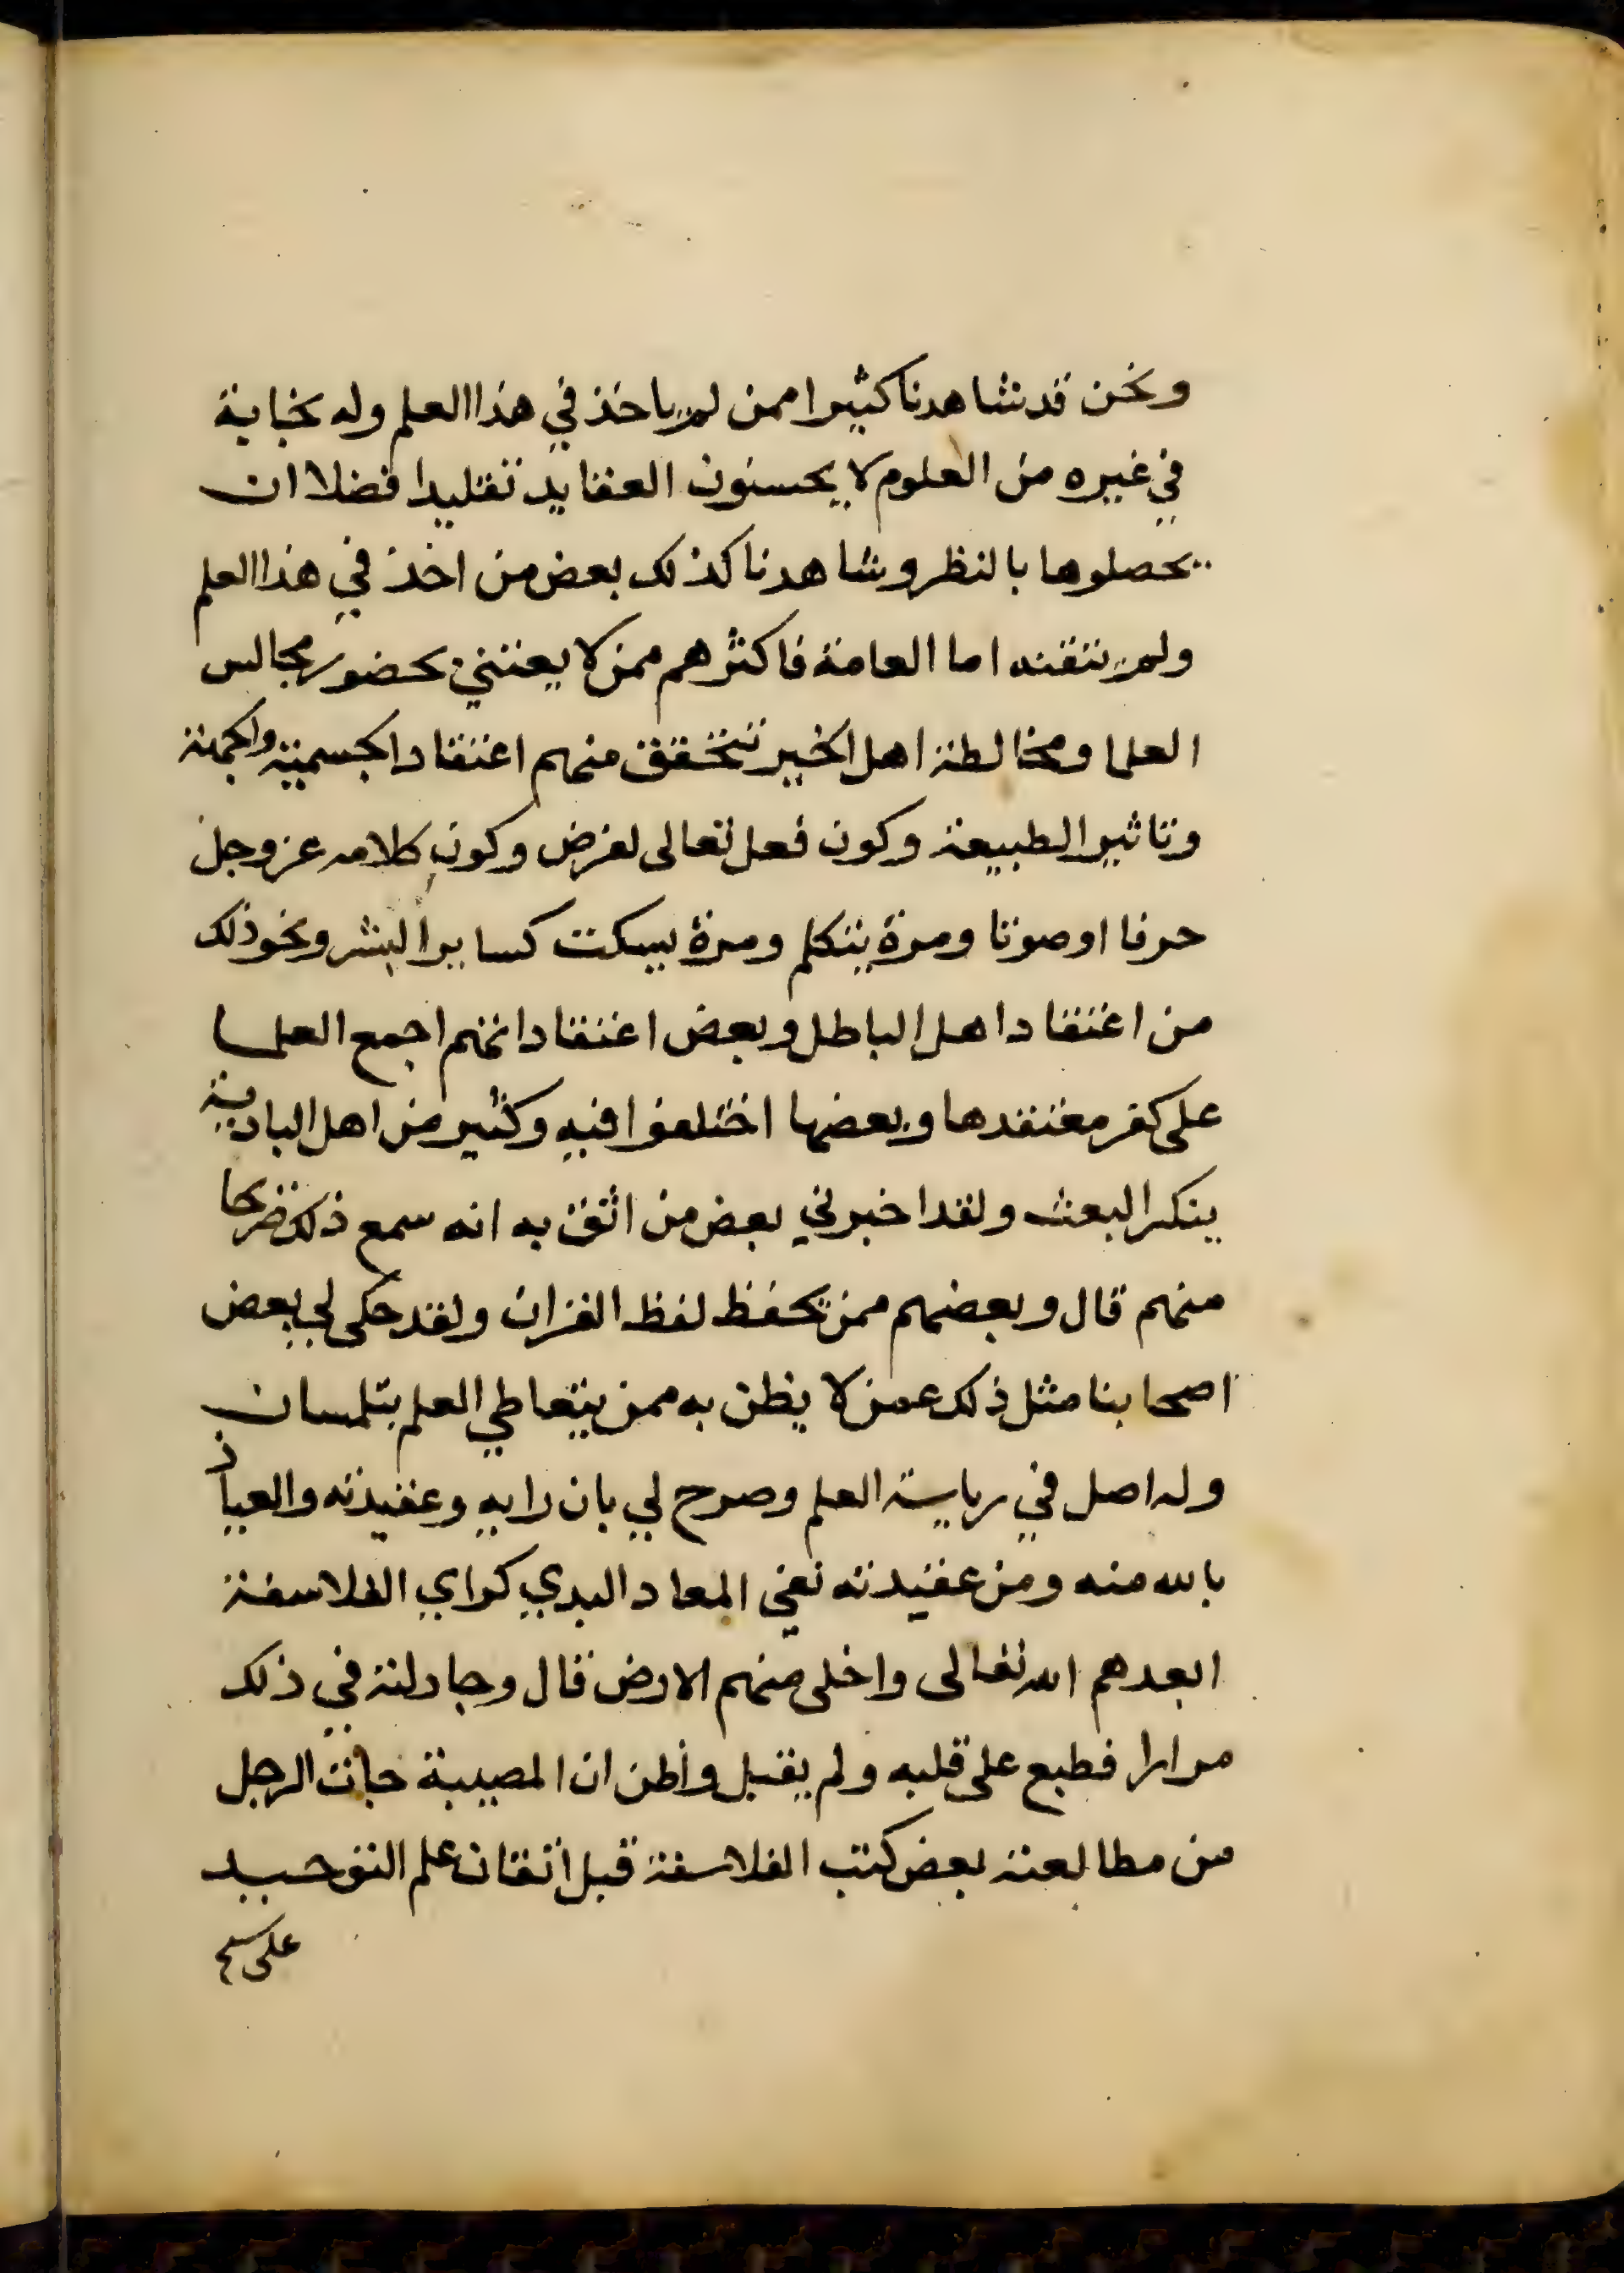 ونحن قد شاهدنا كثيرا ممن لم ياخذ في هذا العلم وله نجابة
في غيره من العلوم لا يحسنون العقايد تقليدا فضلا ان
يحصلوها بالنظر وشاهدنا كذلك بعض من اخذ في هذا العلم
ولم يتقنه اما العامة فاكثرهم ممن لا يعتني بحضور مجالس
العلما ومخالطة اهل الخير نتحقق منهم اعتقاد الجسمية والجهة
وتاثير الطبيعة وكون فعل تعالى لغرض وكون كلامه عز وجل
حرفا او صوتا ومرة يتكلم ومرة يسكت كساير البشر ونحو ذلك
من اعتقاد اهل الباطل وبعض اعتقاداتهم اجمع العلما
على كفر معتقدها وبعضها اختلفوا فيه وكثير من اهل البادية
ينكر البعث ولقد اخبرني بعض من اثق به انه سمع ذلك تصريحا
منهم قال وبعضهم ممن يحفظ لفظ القران ولقد حكى لي بعض
اصحابنا مثل ذلك عمن لا يظن به ممن يتعاطي العلم بتلمسان
وله اصل في رياسة العلم وصرح لي بان رايه وعقيدته والعياذ
بالله منه ومن عقيدته نفي المعاد البدي كراي الفلاسفة
ابعدهم الله تعالى واخلى منهم الارض قال وجادلته في ذلك
مرارا فطبع على قلبه ولم يقبل وأظن ان المصيبة جات الرجل
من مطالعته بعض كتب الفلاسفة قبل اتقان علم التوحيد
على